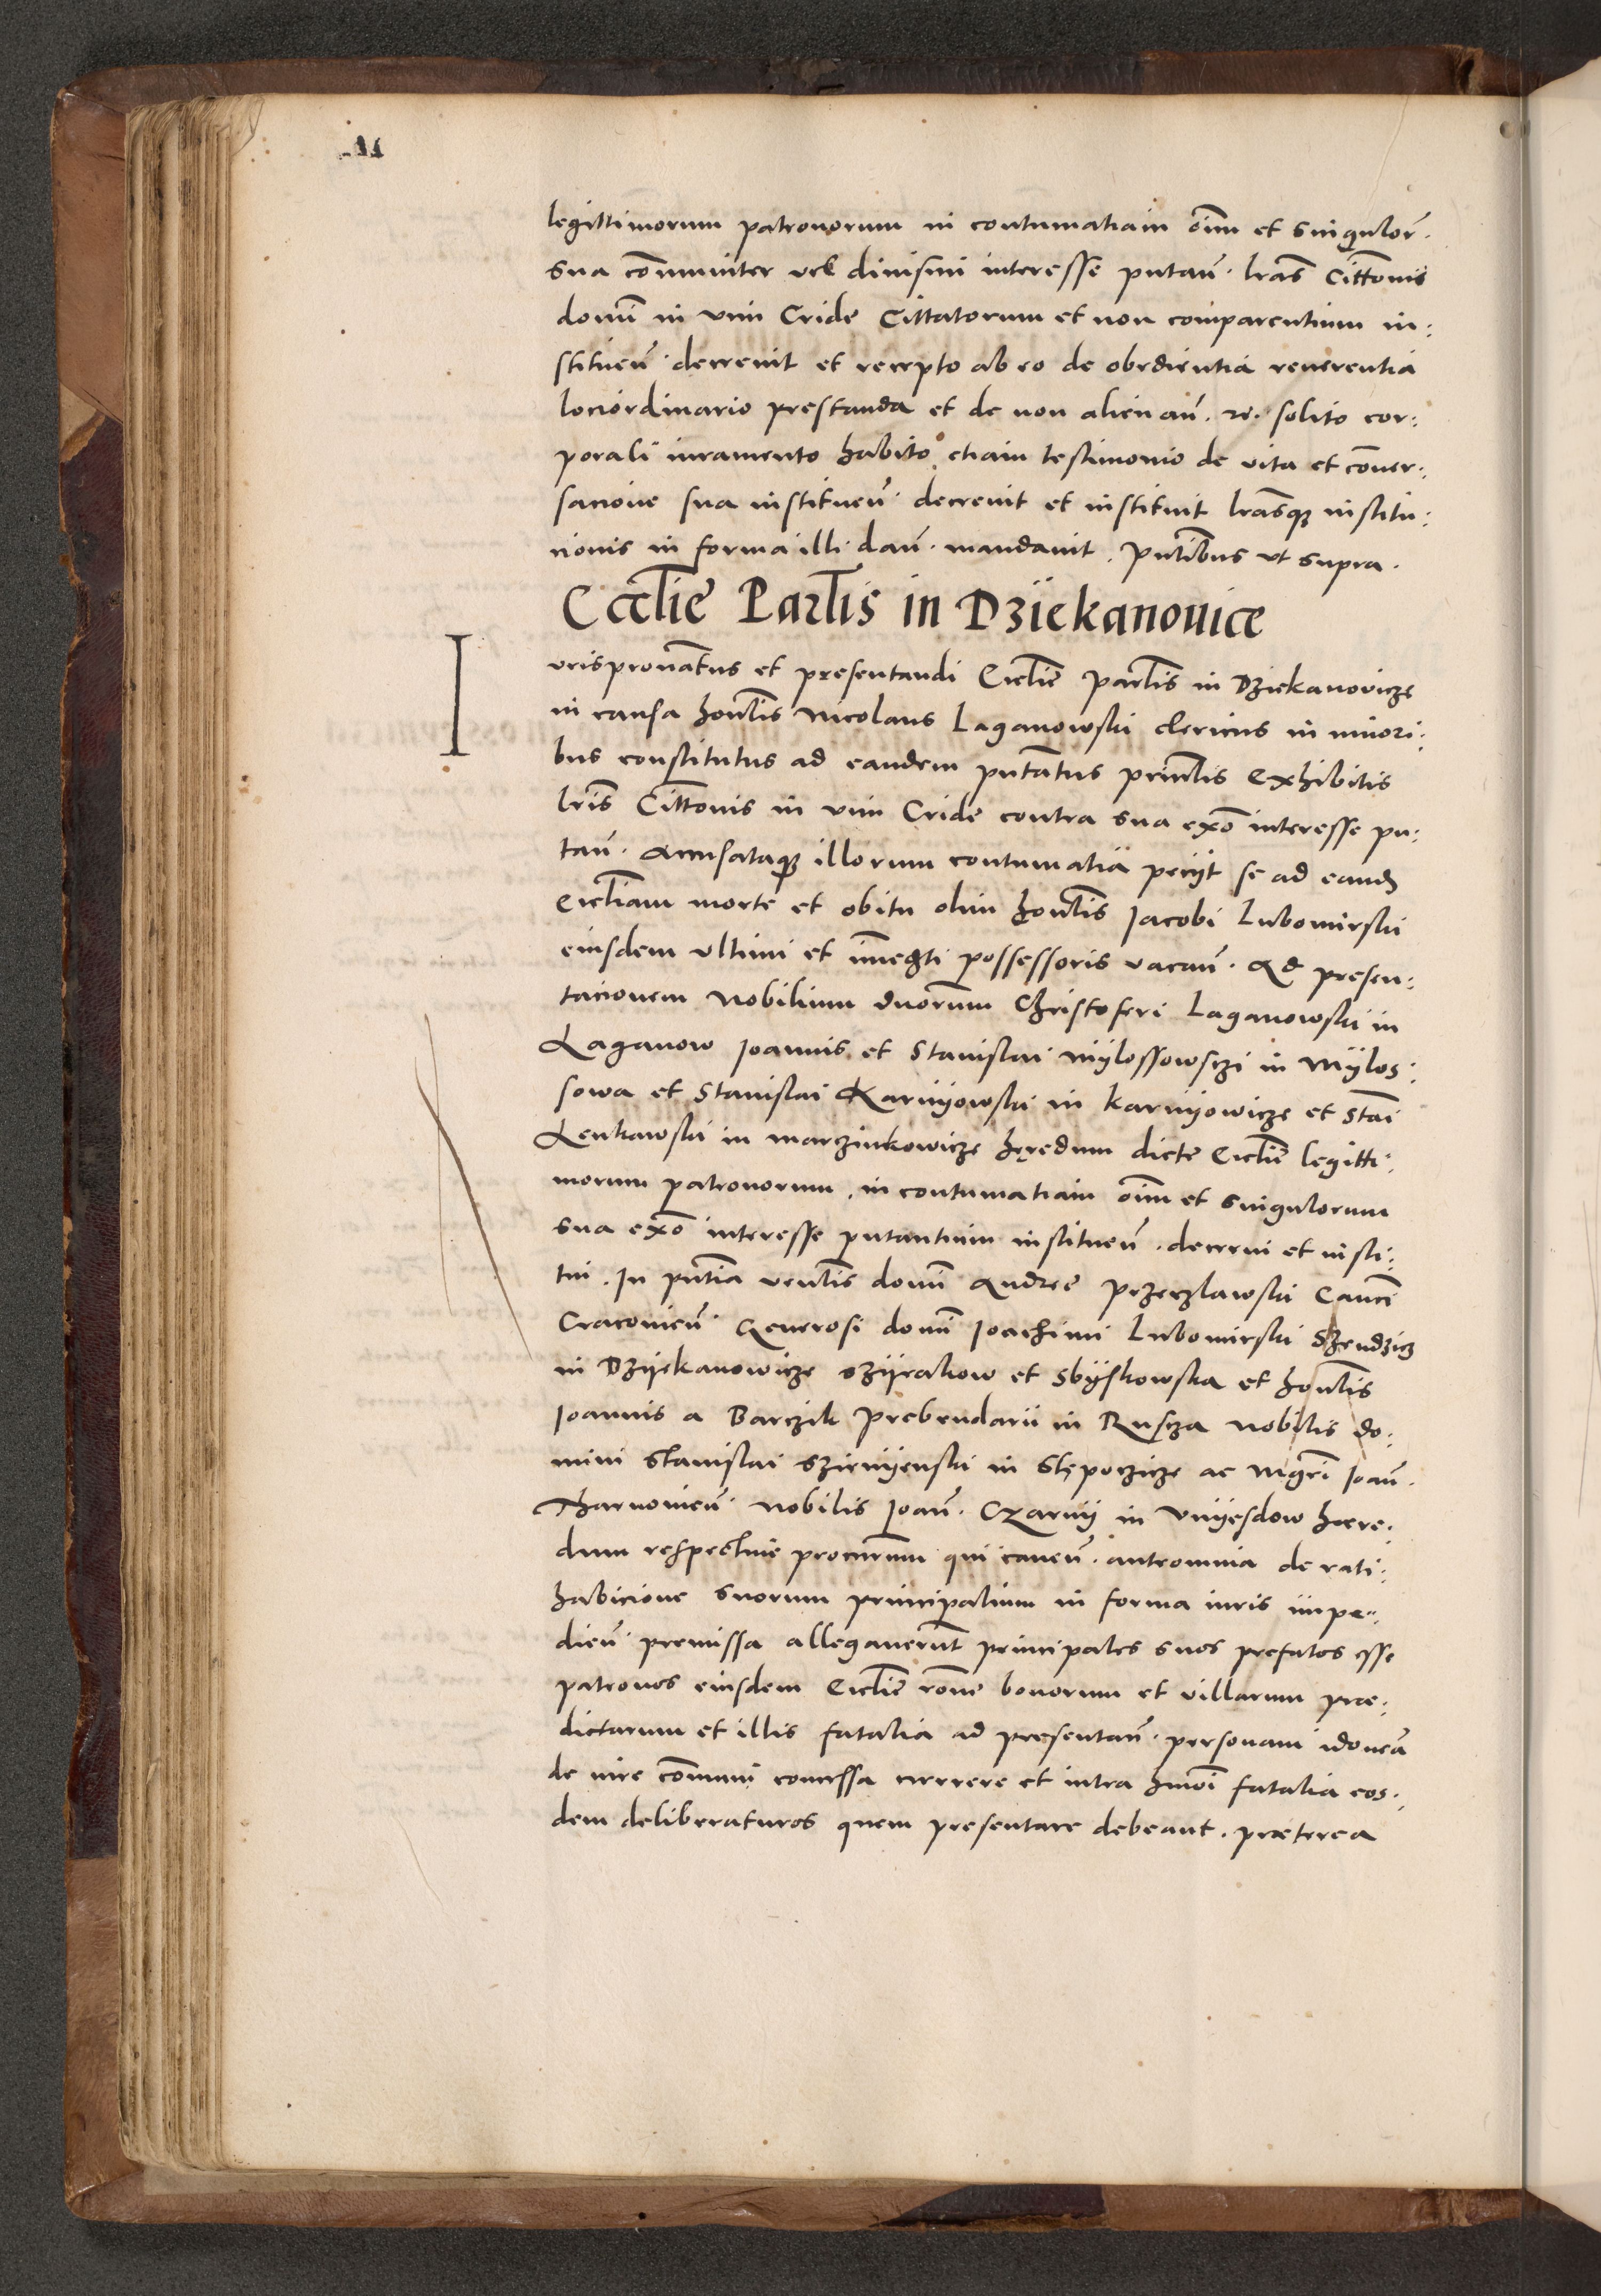 legittimorum patronorum in contumatiam oīm et singulor̄.
sua com̄uniter vel divisim interesse putan̄. l̄ras Citt̄onis
domī in vim Cride Cittatorum et non comparentium in:
stituen̄. decrevit et recepto ab eo de obedientia reverentia
lociordinario prestanda et de non alienan̄. re. solito cor:
porali iuramento habito etiam testimonio de vita et cōver:
sacione sua instituen̄. decrevit et instituit l̄rasqꝫ institu:
cionis in forma illi dan̄. mandavit. pn̄tibus vt supra.
Ecc̄lie Par̄lis in Dziekanouice
I vrispron̄atus et presentandi Eccl̄ie par̄lis in Dziekanovicze
in causa hon̄lis Nicolaus Laganowski clericus in minori:
bus constitutus ad eandem pn̄tatus prin̄lis exhibitis
l̄ris Citt̄onis in vim Cride contra sua ex̄o interesse pu:
tan̄. accusataqꝫ illorum contumatia peciit se ad eandꝫ
Eccl̄iam morte et obitu olim hon̄lis Jacobi Lubomirski
eiusdem vltimi et īmeđti possessoris vacan̄. Ad presen:
tacionem Nobilium dnōrum Christoferi Laganowski in
Laganow Joannis et Stanislai Mylossowsczi in Mylos:
sowa et Stanislai Karnyowski in Karnyowicze et Stāi
Lenkawski in Marczinkowicze heredum dicte Eccl̄ie legitti:
morum patronorum. in contumatiam oīm et singulorum
sua ex̄o interesse putantium instituen̄. decerni et insti:
tui. In pn̄tia ven̄lis domī Andree Przeczlawski Canc̄i
Cracovien̄. Generosi domī Joachimi Lubomirski
in Dzyekanowicze szyrakow et Sbyskowska et hon̄lis
Joannis a Barczik prebendarii in Ruscza nobilis do:
mini Stanislai in Slepoczicze ac Mgr̄i Joan̄.
Tharnovien̄. nobilis Joan̄. Czarny in Vnyesdow haere:
dum respective procur̄um qui caven̄. anteomnia de rati:
habicione suorum principalium in forma iuris impe:
dien̄. premissa allegaverun̄t principales suos prefatos esse
patronos eiusdem Eccl̄ie rōne bonorum et villarum prae:
dictarum et illis fatalia ad presentan̄. personam idoneā
de iure com̄uni concessa currere et intra hm̄oi fatalia eos:
dem deliberaturos quem presentare debeant. praeterea